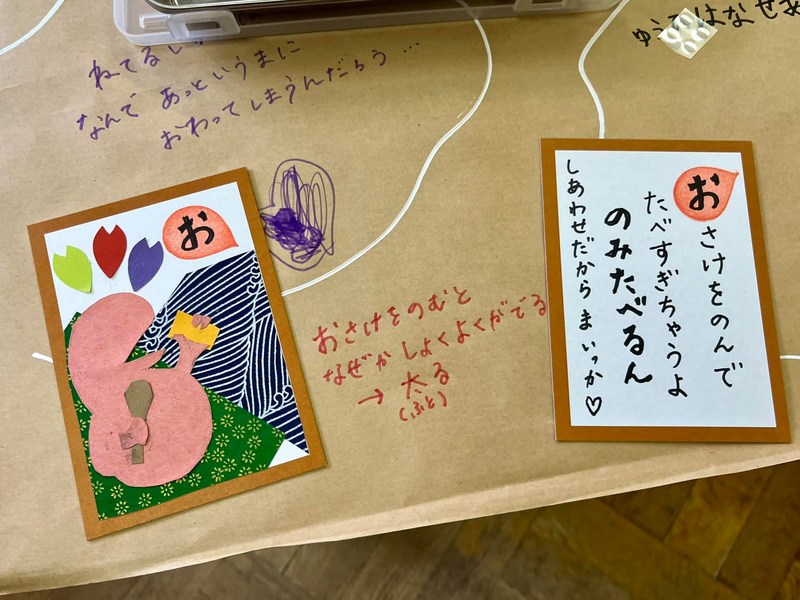 ねてるし
なんで あっというまに
おわってしまうんだろう…
ゆうではなぜあ
お
おさけをのむと
なぜかしょくよくがでる
→ 太る
(ふと)
おさけをのんで
たべすぎちゃうよ
のみたべるん
しあわせだから まいっか♡